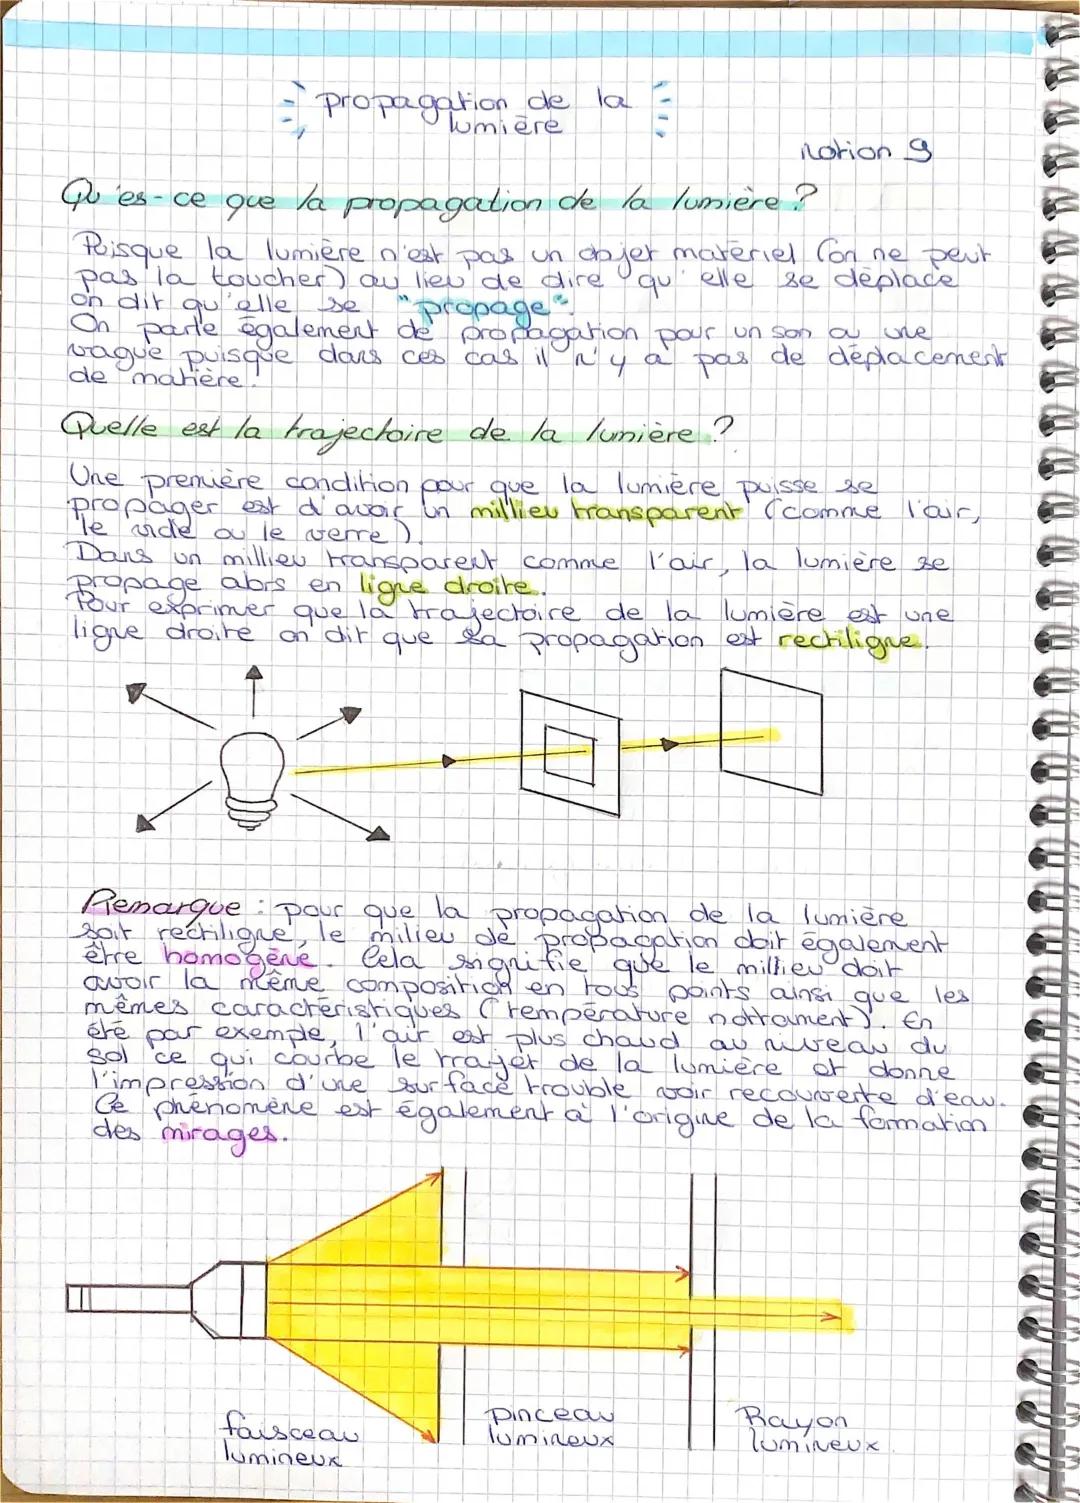 propagation de la
lumière
Notion 9
Qu'es-ce que la propagation de la lumière ?
Puisque la lumière n'est pas un objet matériel (on ne peut
pas la toucher) au lieu de dire qu'elle se déplace
on dit qu'elle se "propage".
On parle également de propagation pour un son ou une
vague puisque dans ces cas il n'y a pas de déplacement
de matière.
Quelle est la trajectoire de la lumière ?
Une première condition pour que la lumière puisse se
propager est d'avoir un millieu transparent (comme l'air,
le vide ou le verre).
Dans un millieu transparent comme l'air, la lumière se
propage alors en ligne droite.
Pour exprimer que la trajectoire de la lumière est une
ligne droite on dit que sa propagation est rectiligne.
Remarque : pour que la propagation de la lumière
soit rectiligne, le milieu de propagation doit également
être homogène. Cela signifie que le millieu doit
avoir la même composition en tous points ainsi que les
mêmes caractéristiques (température nottament). En
été par exemple, l'air est plus chaud au niveau du
sol ce qui courbe le trajet de la lumière et donne
l'impression d'une surface trouble voir recouverte d'eau.
Ce phénomène est également à l'origine de la formation
des mirages.
faisceau
lumineux
pinceau
lumineux
Rayon
lumineux